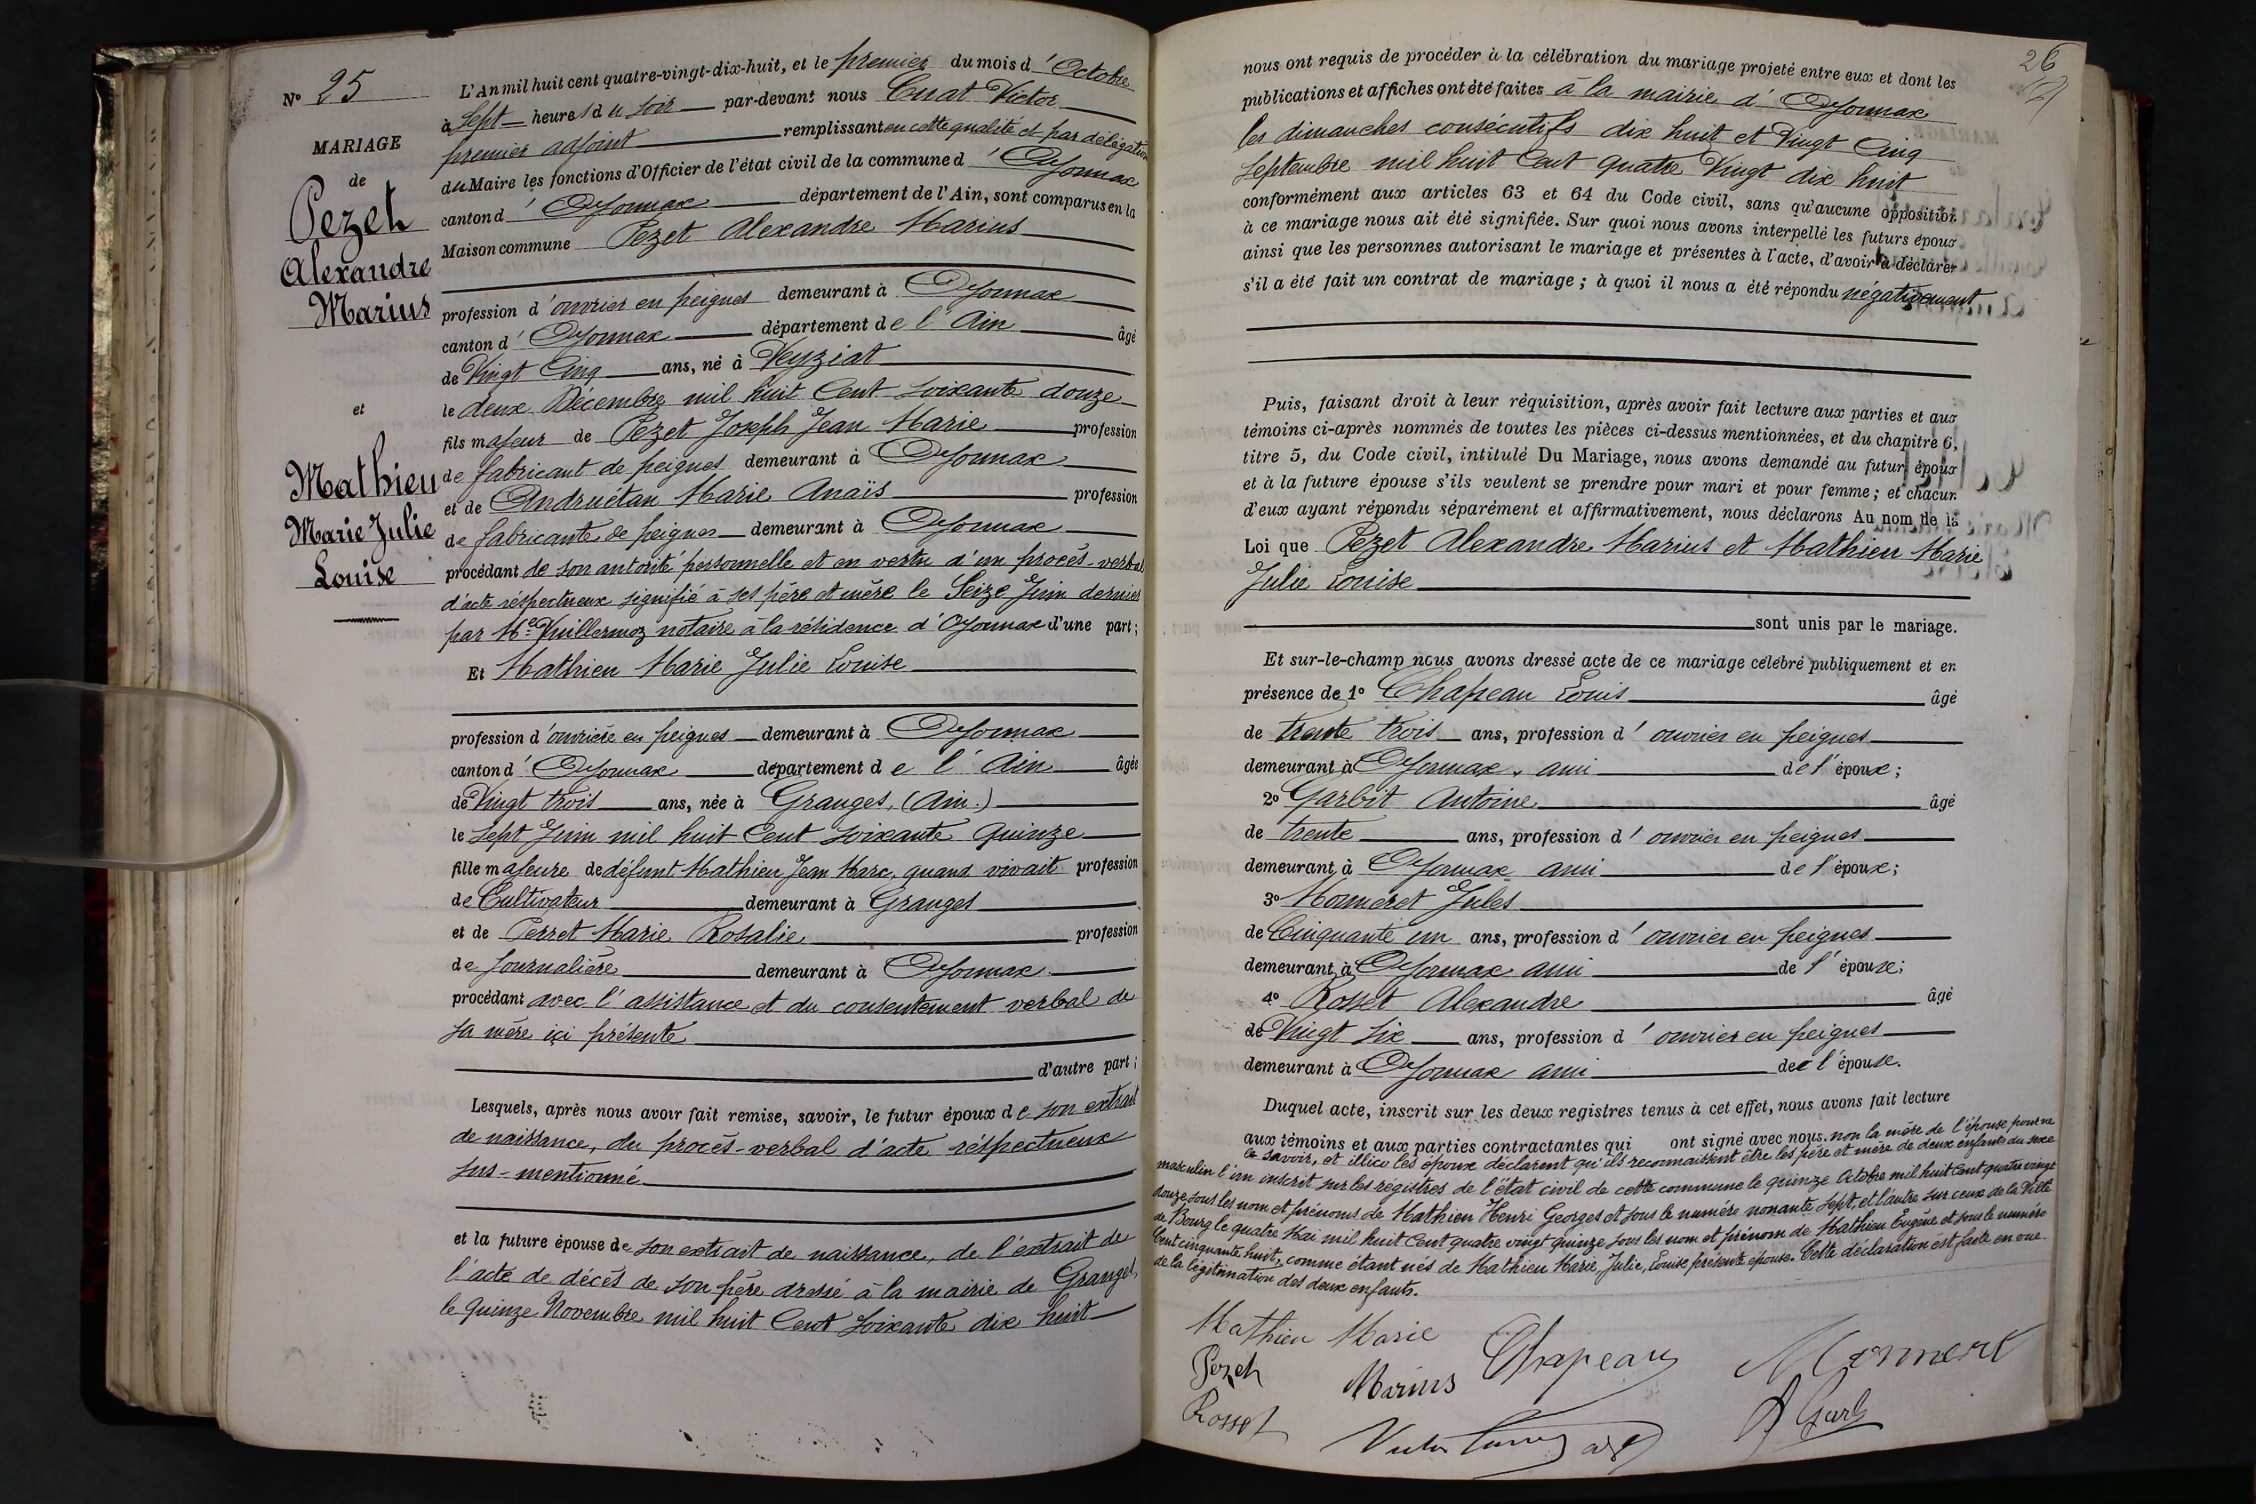 N° 25
MARIAGE
de
Pezet
Alexandre
Marius
et
Mathieu
Marie Julie
Louise
L'An mil huit cent quatre-vingt-dix-huit, et le premier du mois d'Octobre
à Sept heures du soir par-devant nous Cuat Victor
premier adjoint remplissant en cette qualité et par délégation
du Maire les fonctions d'Officier de l'état civil de la commune d'Oyonnax
canton d'Oyonnax département de l'Ain, sont comparus en la
Maison commune Pezet Alexandre Marius
profession d'ouvrier en peignes demeurant à Oyonnax
canton d'Oyonnax département de l'Ain âgé
de Vingt Cinq ans, né à Veyziat
le deux Décembre mil huit Cent soixante douze
fils majeur de Pezet Joseph Jean Marie profession
de fabricant de peignes demeurant à Oyonnax
et de Andruétan Marie Anaïs profession
de fabricante de peignes demeurant à Oyonnax
procédant de son autorité personnelle et en vertu d'un procès-verbal
d'acte réspectueux signifié à ses père et mère le Seize Juin dernier
par Me Vuillermoz notaire à la résidence d'Oyonnax d'une part;
Et Mathieu Marie Julie Louise
profession d'ouvrière en peignes demeurant à Oyonnax
canton d'Oyonnax département de l'Ain âgée
de Vingt trois ans, née à Granges, (Ain.)
le sept Juin mil huit Cent soixante Quinze
fille majeure de défunt Mathieu Jean Marc, quand vivait profession
de Cultivateur demeurant à Granges
et de Perret Marie Rosalie profession
de journalière demeurant à Oyonnax
procédant avec l'assistance et du consentement verbal de
sa mère ici présente
d'autre part;
Lesquels, après nous avoir fait remise, savoir, le futur époux de son extrait
de naissance, du procès-verbal d'acte réspectueux
sus-mentionné
et la future épouse de son extrait de naissance, de l'extrait de
l'acte de décès de son père dressé à la mairie de Granges,
le Quinze Novembre mil huit Cent soixante dix huit
26
nous ont requis de procéder à la célébration du mariage projeté entre eux et dont les
publications et affiches ont été faites à la mairie d'Oyonnax
les dimanches consécutifs dix huit et Vingt Cinq
Septembre mil huit Cent quatre Vingt dix huit
conformément aux articles 63 et 64 du Code civil, sans qu'aucune opposition
à ce mariage nous ait été signifiée. Sur quoi nous avons interpellé les futurs époux
ainsi que les personnes autorisant le mariage et présentes à l'acte, d'avoir à déclarer
s'il a été fait un contrat de mariage; à quoi il nous a été répondu négativement
Puis, faisant droit à leur réquisition, après avoir fait lecture aux parties et aux
témoins ci-après nommés de toutes les pièces ci-dessus mentionnées, et du chapitre 6,
titre 5, du Code civil, intitulé Du Mariage, nous avons demandé au futur époux
et à la future épouse s'ils veulent se prendre pour mari et pour femme; et chacun
d'eux ayant répondu séparément et affirmativement, nous déclarons Au nom de la
Loi que Pezet Alexandre Marius et Mathieu Marie
Julie Louise
sont unis par le mariage.
Et sur-le-champ nous avons dressé acte de ce mariage célébré publiquement et en
présence de 1° Chapeau Louis âgé
de trente trois ans, profession d'ouvrier en peignes
demeurant à Oyonnax, ami de l'époux;
2° Garbit Antoine âgé
de trente ans, profession d'ouvrier en peignes
demeurant à Oyonnax ami de l'époux;
3° Monneret Jules
de Cinquante un ans, profession d'ouvrier en peignes
demeurant à Oyonnax ami de l'épouse;
4° Rosset Alexandre âgé
de Vingt six ans, profession d'ouvrier en peignes
demeurant à Oyonnax ami de l'épouse.
Duquel acte, inscrit sur les deux registres tenus à cet effet, nous avons fait lecture
aux témoins et aux parties contractantes qui ont signé avec nous. non la mère de l'épouse pour ne
le savoir, et illico les époux déclarent qu'ils reconnaissent être les père et mère de deux enfants du sexe
masculin l'un inscrit sur les régistres de l'état civil de cette commune le quinze Octobre mil huit Cent quatre vingt
douze sous les nom et prénoms de Mathieu Henri Georges et sous le numéro nonante sept, et l'autre sur ceux de la Ville
de Bourg le quatre Mai mil huit Cent quatre vingt quinze sous les nom et prénom de Mathieu Eugène et sous le numéro
Cent cinquante huit, comme étant nés de Mathieu Marie, Julie, Louise présente épouse. Cette déclaration est faite en vue
de la légitimation des deux enfants.
Mathieu Marie
Pezet Marius Chapeau Monneret
Rosset Victor Cuat adj A Garb